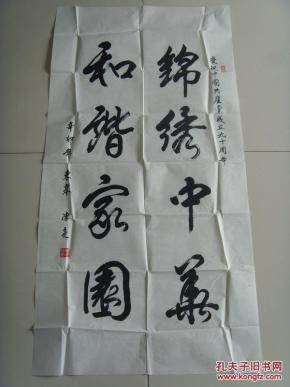 慶祝中國共産黨成立九十周年
錦綉中華
和諧家園
辛卯年春
孔夫子旧书网
www.kongfz.com